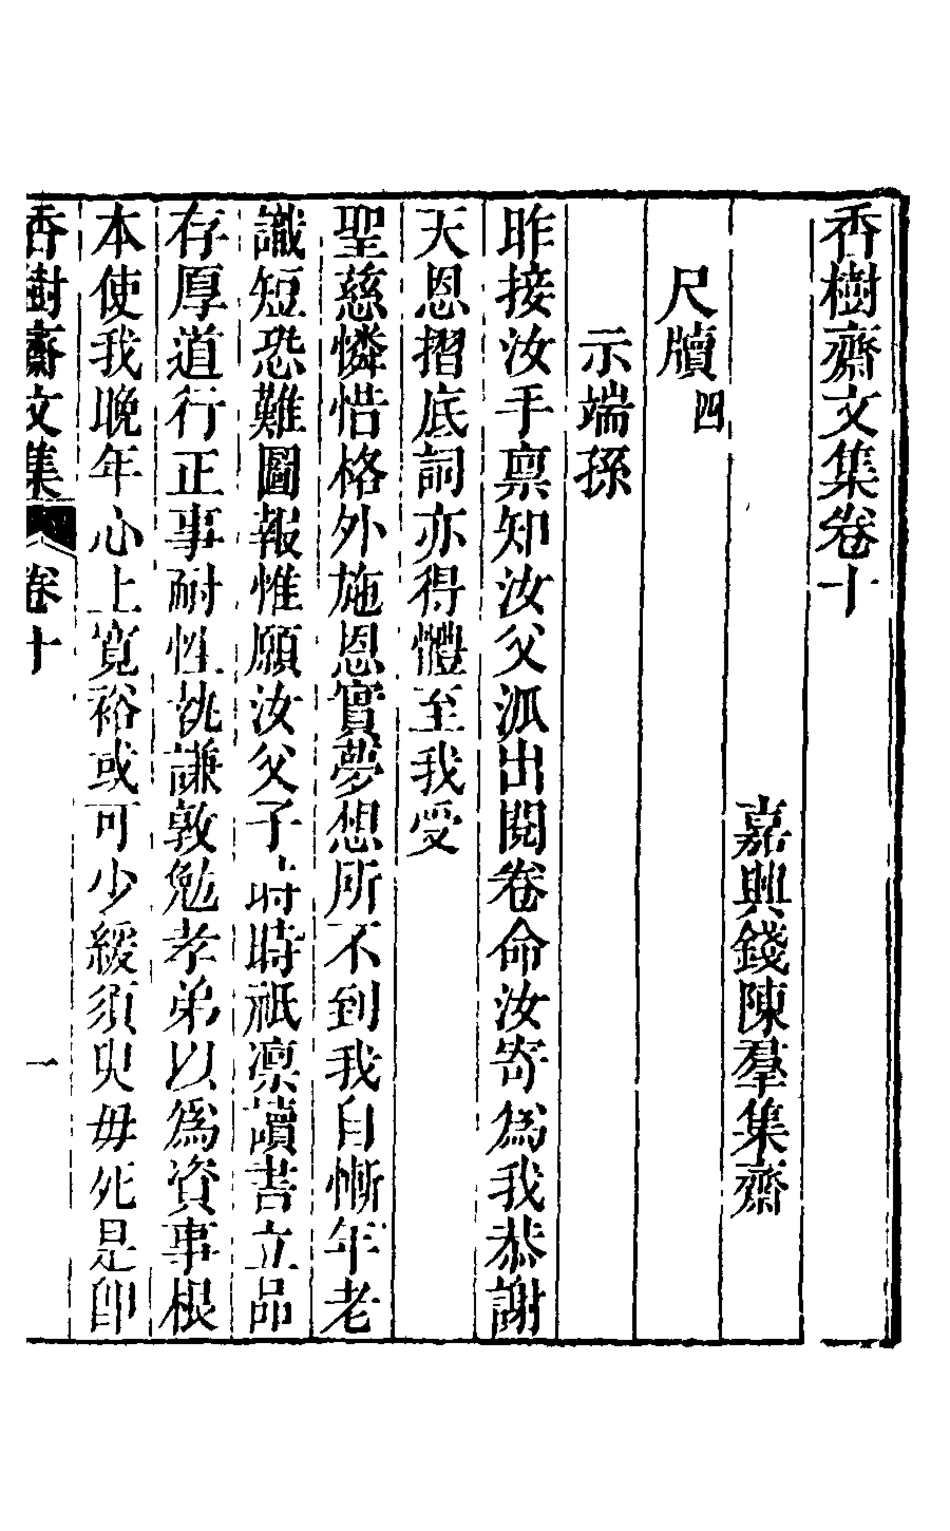 香樹齋文集卷十
嘉興錢陳羣集齋
尺牘四
示端孫
昨接汝手稟知汝父派出閱卷命汝寄為我恭謝
天恩摺底詞亦得體至我受
聖慈憐惜格外施恩實夢想所不到我自慚年老
識短恐難圖報惟願汝父子時時祇凜讀書立品
存厚道行正事耐性執謙敦勉孝弟以為資事根
本使我晚年心上寬裕或可少緩須臾毋死是卽
香樹齋文集 卷十 一